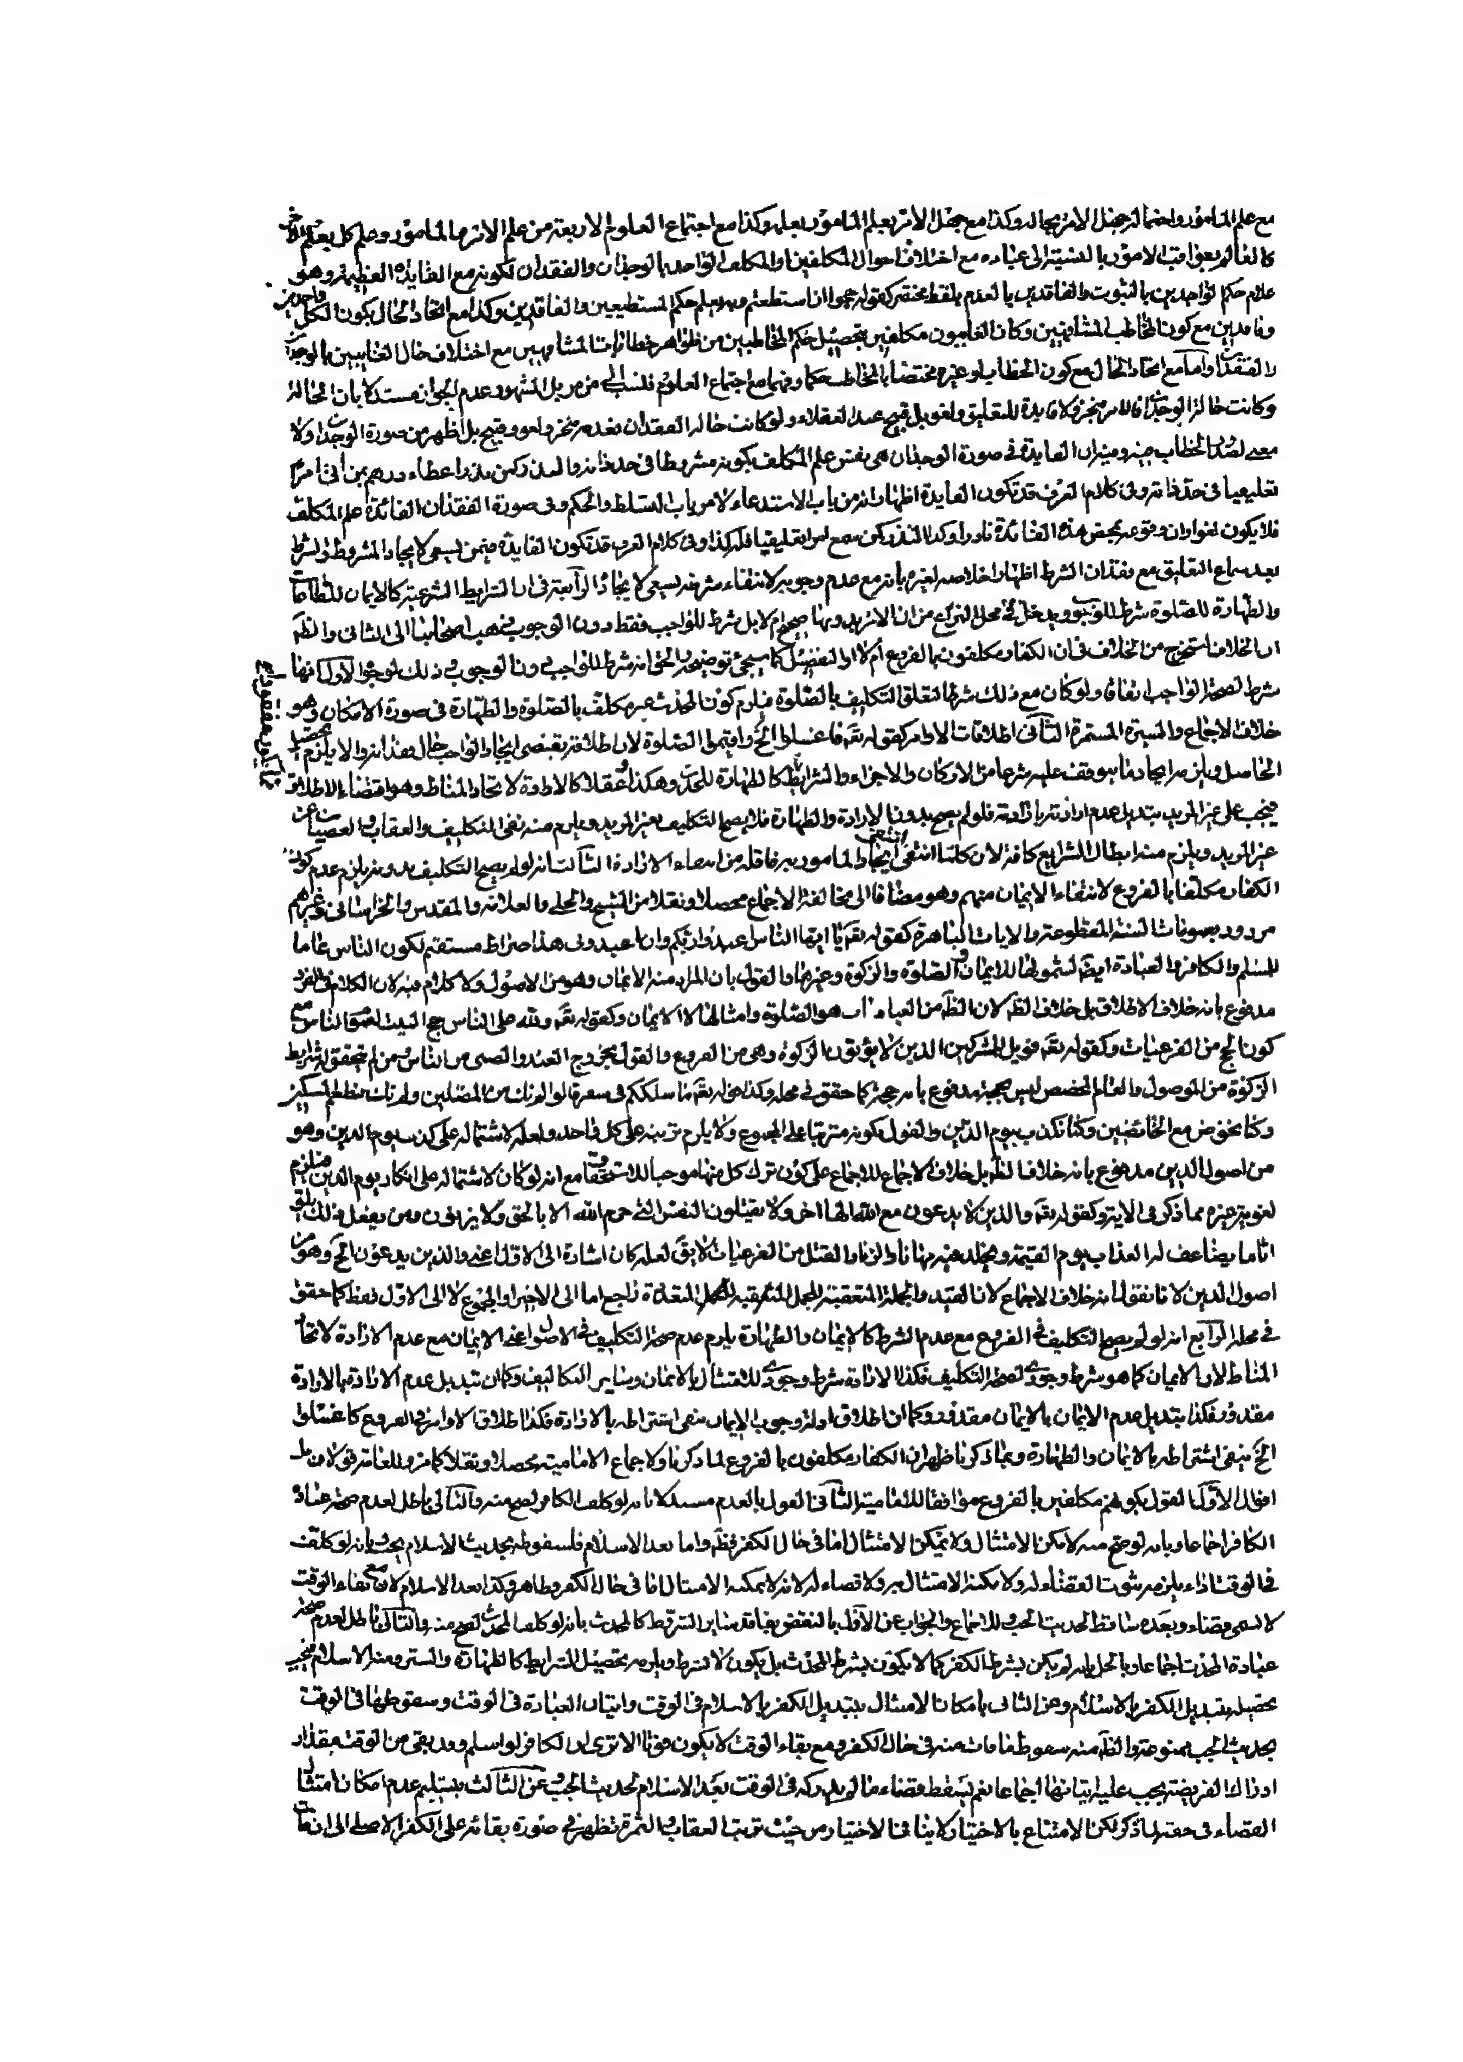 مع علم المامور واحتماله جهل الامر بحاله وكذا مع جهل الامر بعلم المامور بعلمه وكذا مع اجتماع العلوم الاربعة من علم الامر والمامور وعلم كل بعلم
العالم بعواقب الامور بالنسبة الى عباده مع اختلاف احوال المكلفين او المكلف الواحد بالوجدان والفقدان لكونه مع الفايدة العظيمة وهو
علام حكم الواجدين بالثبوت والفاقدين بالعدم بلفظ مختصر كقوله حجوا ان استطعتم يعلم حكم المستطيعين والفاقدين وكذا مع اتحاد الحال بكون الكل واجدين
وفاقدين مع كون المخاطب المشافهين وكان الغايبون مكلفين بتحصيل حكم المخاطبين من ظواهر خطابات المشافهين مع اختلاف حال الغايبين بالوجدان
والفقدان واما مع اتحاد الحال مع كون الخطاب او غيره مختصا بالمخاطب مع اجتماع العلوم فنسب الى المشهور عدم الجواز مستدلا بان الحالة
وكانت حالة الوجدان فالامر منجز ولا فايدة للتعليق ولغو بل قبيح عند العقلاء ولو كانت حالة الفقدان فعدمه منجز ولغو وقبيح بل اظهر من صورة الوجدان ولا
الخطاب فيه ان الفايدة في صورة الوجدان هي نفس علم المكلف بكونه مشروطا في حد ذاته كمن نذر اعطاء درهم
تعليقيا في حد ذاته وفي كلام العرف قد تكون الفايدة اظهار انه من باب الاستدعاء لا من باب التسلط والحكم وفي صورة الفقدان الفائدة علم المكلف
فلا يكون لغوا وان وقوعه بمحض هذه الفائدة نادرا وكذا المنذر كمن سمع امرا تعليقيا فله كذا وفي كلام العرف قد تكون الفايدة فيمن يسعى لايجاد المشروط والشرط
بعد سماع التعليق مع فقدان الشرط اظهار اخلاصه لغيره بانه مع عدم وجوبه لانتفاء شرطه يسعى لايجاده الرابعة في ان الشرايط الشرعية كالايمان للطاعات
والطهارة للصلوة شرط للوجوب ويدخل في محل النزاع من ان الامر بدونها صحيح ام لا بل شرط للواجب فقط دون الوجوب فذهب اصحابنا الى الثاني والظ
ان الخلاف استخرج من الخلاف في ان الكفار مكلفون بالفروع ام لا او التفصيل كما سيجئ توضيحه والحق انه شرط للواجب دون الوجوب في ذلك لوجوه الاول انها
شرط لصحة الواجب اتفاقا ولو كان مع ذلك شرطا لتعلق التكليف بالصلوة فيلزم كون المحدث غير مكلف بالصلوة والطهارة في صورة الامكان وهو
خلاف الاجماع والسيرة المستمرة الثاني اطلاقات الاوامر كقوله تعه فاغسلوا الخ واقيموا الصلوة لان اطلاقه يقتضي ايجاد الواجب حال فقدانه والا يلزم تحصيل
الحاصل ويلزم ايجاد ما يتوقف عليه شرعا من الاركان والاجزاء والشرايط كالطهارة للمحدث وهكذا وعقلا كالارادة لاتحاد المناط وهو اقتضاء الاطلاق
فيجب على غير المريد تبديل عدم ارادته بارادته فلو لم يصح بدون الارادة والطهارة فلا يصح التكليف بغير المريد ويلزم منه نفي التكليف والعقاب والعصيان عن
غير المريد ويلزم منه ابطال الشرايع كافة لان كلما انتفى ايجاد المامور به فاقله من انتفاء الارادة الثالث انه لو لم يصح التكليف بدونه يلزم عدم كون
الكفار مكلفا بالفروع لانتفاء الايمان منهم وهو مضافا الى مخالفة الاجماع محصلا ونقلا من الشيخ والحلي والعلامة والمقدس والخراساني وغيرهم
مردود بعمومات السنة المقطوعة والايات الباهرة كقوله تعه يا ايها الناس اعبدوا ربكم وان اعبدوني هذا صراط مستقيم لكون الناس عاما
للمسلم والكافر والعبادة ايضا لشمولها للايمان والصلوة والزكوة وغيرها والقول بان المراد منه الايمان وهو من الاصول ولا كلام فيه لان الكلام في الفروع
مدفوع بانه خلاف الاطلاق بل خلاف الظ لان الظ من العبادات هو الصلوة وامثالها لا الايمان وكقوله تعه ولله على الناس حج البيت لعموم الناس مع
كون الحج من الفرعيات وكقوله تعه فويل للمشركين الذين لا يؤتون الزكوة وهي من الفروع والقول بخروج العبد والصبي من الناس ومن لم تتحقق له شرايط
الزكوة من الموصول والعام المخصص ليس بحجة مدفوع بانه حجة كما حقق في محله وكذا قوله تعه ما سلككم في سقر قالوا لم نك من المصلين ولم نك نطعم المسكين
وكنا نخوض مع الخائضين وكنا نكذب بيوم الدين والقول بكونه مترتبا على المجموع ولا يلزم ترتبه على كل واحد ولعله لاشتماله على كذب بيوم الدين وهو
من اصول الدين مدفوع بانه خلاف الظ بل خلاف الاجماع للاجماع على كون ترك كل منها موجبا للاستحقاق مع انه لو كان لاشتماله على انكار يوم الدين فيلزم
لغوية غيره مما ذكر في الاية وكقوله تعه والذين لا يدعون مع الله الها اخر ولا يقتلون النفس التي حرم الله الا بالحق ولا يزنون ومن يفعل ذلك يلق
اثاما يضاعف له العذاب يوم القيمة ويخلد فيه مهانا والزنا والقتل من الفرعيات لا يق لعله كان اشارة الى الاول اعني والذين يدعون الخ وهو من
اصول الدين لانا نقول انه خلاف الاجماع لان القيد والجملة المتعقبة للجمل المتعددة راجع اما الى الاخير او المجموع لا الى الاول فقط كما حقق
في محله الرابع انه لو لم يصح التكليف في الفروع مع عدم الشرط كالايمان والطهارة يلزم عدم صحة التكليف في الاصول اعني الايمان مع عدم الارادة لاتحاد
المناط لان الايمان كما هو شرط وجودي لصحة التكليف فكذا الارادة شرط وجودي للامتثال بالايمان وساير التكاليف وكما ان تبديل عدم الارادة بالارادة
مقدور فكذا تبديل عدم الايمان بالايمان مقدور وكما ان اطلاق ادلة وجوب الايمان ينفي اشتراطه بالارادة فكذا اطلاق الاوامر في الفروع كاغسلوا
الخ ينفي اشتراطه بالايمان والطهارة وبما ذكرنا ظهر ان الكفار مكلفون بالفروع لما ذكرنا ولاجماع الامامية محصلا ونقلا كما مر وللعامة قولان بل
اقوال الاول القول بكونهم مكلفين بالفروع موافقا للامامية الثاني القول بالعدم مستدلا بانه لو كلف الكافر لصح منه والتالي باطل لعدم صحة عبادة
الكافر اجماعا وبانه لو صح منه لامكن الامتثال ولا يمكن الامتثال اما في حال الكفر فظ واما بعد الاسلام فلسقوطه بحديث الاسلام يجب وبانه لو كلف
في الوقت اداء يلزم ثبوت القضاء له ولا يمكنه الامتثال به ولا قضاء له لانه لا يمكنه الامتثال اما في حال الكفر وظاهر وكذا بعد الاسلام لان مع بقاء الوقت
لا يسمى قضاء وبعده ساقط لحديث الجب وللاجماع والجواب عن الاول بالنقض بفاقد ساير الشروط كالمحدث بانه لو كلف المحدث لصح منه والتالي باطل لعدم صحة
عبادة المحدث اجماعا وبالحل بانه لم يكن بشرط الكفر كما لا يكون بشرط الحدث بل يكون لا بشرط ويلزمه تحصيل الشرايط كالطهارة والستر ومنه الاسلام فيجب
تحصيله بتبديل الكفر بالاسلام وعن الثاني بامكان الامتثال بتبديل الكفر بالاسلام في الوقت واتيان العبادة في الوقت وسقوطها في الوقت
بحديث الجب ممنوعة والظ منه سقوط ما فات منه في حال الكفر ومع بقاء الوقت لا يكون فوتا الا ترى ان الكافر لو اسلم وقد بقى من الوقت مقدار
اداء الفريضة يجب عليه اتيانها اجماعا نعم يسقط قضاء ما لم يدركه في الوقت بعد الاسلام لحديث الجب وعن الثالث بتسليم عدم امكان امتثال
القضاء في حقه لما ذكر لكن الامتناع بالاختيار لا ينافي الاختيار من حيث ترتب العقاب والثمرة تظهر في صورة بقائه على الكفر الاصلي الى ان مات